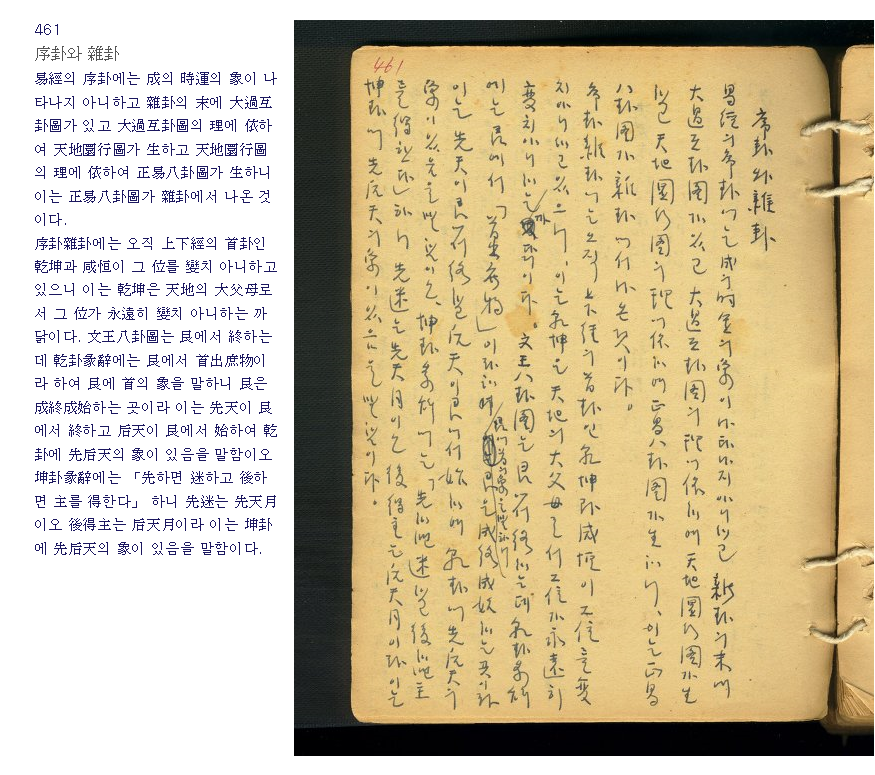 461
序卦와 雜卦
易經의 序卦에는 成의 時運의 象이 나
타나지 아니하고 雜卦의 末에 大過互
卦圖가 있고 大過互卦圖의 理에 依하
여 天地圜行圖가 生하고 天地圜行圖
의 理에 依하여 正易八卦圖가 生하니
이는 正易八卦圖가 雜卦에서 나온 것
이다.
序卦雜卦에는 오직 上下經의 首卦인
乾坤과 咸恒이 그 位를 變치 아니하고
있으니 이는 乾坤은 天地의 大父母로
서 그 位가 永遠히 變치 아니하는 까
닭이다. 文王八卦圖는 艮에서 終하는
데 乾卦彖辭에는 艮에서 首出庶物이
라 하여 艮에 首의 象을 말하니 艮은
成終成始하는 곳이라 이는 先天이 艮
에서 終하고 后天이 艮에서 始하여 乾
卦에 先后天의 象이 있음을 말함이오
坤卦彖辭에는 「先하면 迷하고 後하
면 主를 得한다」 하니 先迷는 先天月
이오 後得主는 后天月이라 이는 坤卦
에 先后天의 象이 있음을 말함이다.
461
序卦와 雜卦
易經의 序卦에는 成의 時運의 象이 나타나지 아니하고 雜卦의 末에
大過互卦圖가 있고 大過互卦圖의 理에 依하여 天地圜行圖가 生
하고 天地圜行圖의 理에 依하여 正易八卦圖가 生하니, 이는 正易
八卦圖가 雜卦에서 나온 것이다。
序卦雜卦에는 오직 上下經의 首卦인 乾坤과 咸恒이 그 位를 變
치 아니하고 있으니, 이는 乾坤은 天地의 大父母로서 그 位가 永遠히
變치 아니하는 까닭이다。文王八卦圖는 艮에서 終하는데 乾卦彖辭
에는 艮에서 「首出庶物」이라 하여 艮에 首의 象을 말하니 艮은 成終成始하는 곳이라
이는 先天이 艮에서 終하고 后天이 艮에서 始하여 乾卦에 先后天의
象이 있음을 말함이오, 坤卦彖辭에는 「先하면 迷하고 後하면 主
를 得한다」 하니 先迷는 先天月이오 後得主는 后天月이라 이는
坤卦에 先后天의 象이 있음을 말함이다.